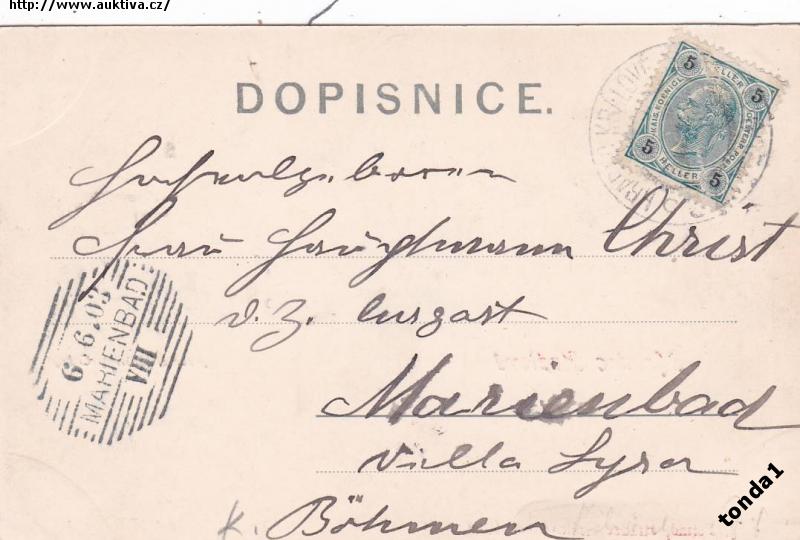 http://www.auktiva.cz/
DOPISNICE.
KRALOVÉ
5 HELLER 5
KAIS. KOENIGL. OESTERR. POST
5 HELLER 5
Hochwolgeboren
Frau Hauptmann Christ
d. Z. Curgast
6.6.03
MARIENBAD
VIII
Marienbad
Villa Lyra
K. Böhmen
tonda1